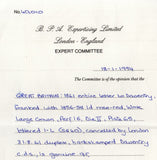 B. P. A. Expertising Limited
London - England
EXPERT COMMITTEE
18-1-1994
The Committee is of the opinion that the
GREAT BRITAIN: 1861 entire letter to Daventry
franked with 1856-58 1d rose-red, Wmk
Large Crown, Perf 14, Die II, Plate 65,
lettered I-L (SG40) cancelled by London
duplex, backstamped Daventry
c.d.s., is genuine.